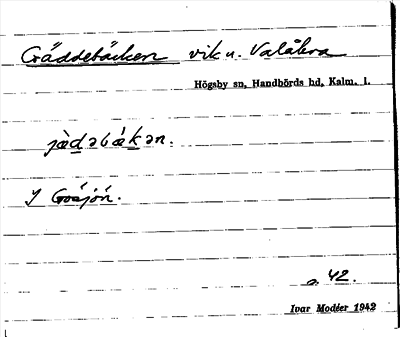 Gäddebäcken vik u. Valåkra
Högsby sn, Handbörds hd, Kalm. l.
jæ̀dəbǽkən.
I Gåsjön.
a. 42.
Ivar Modéer 1942